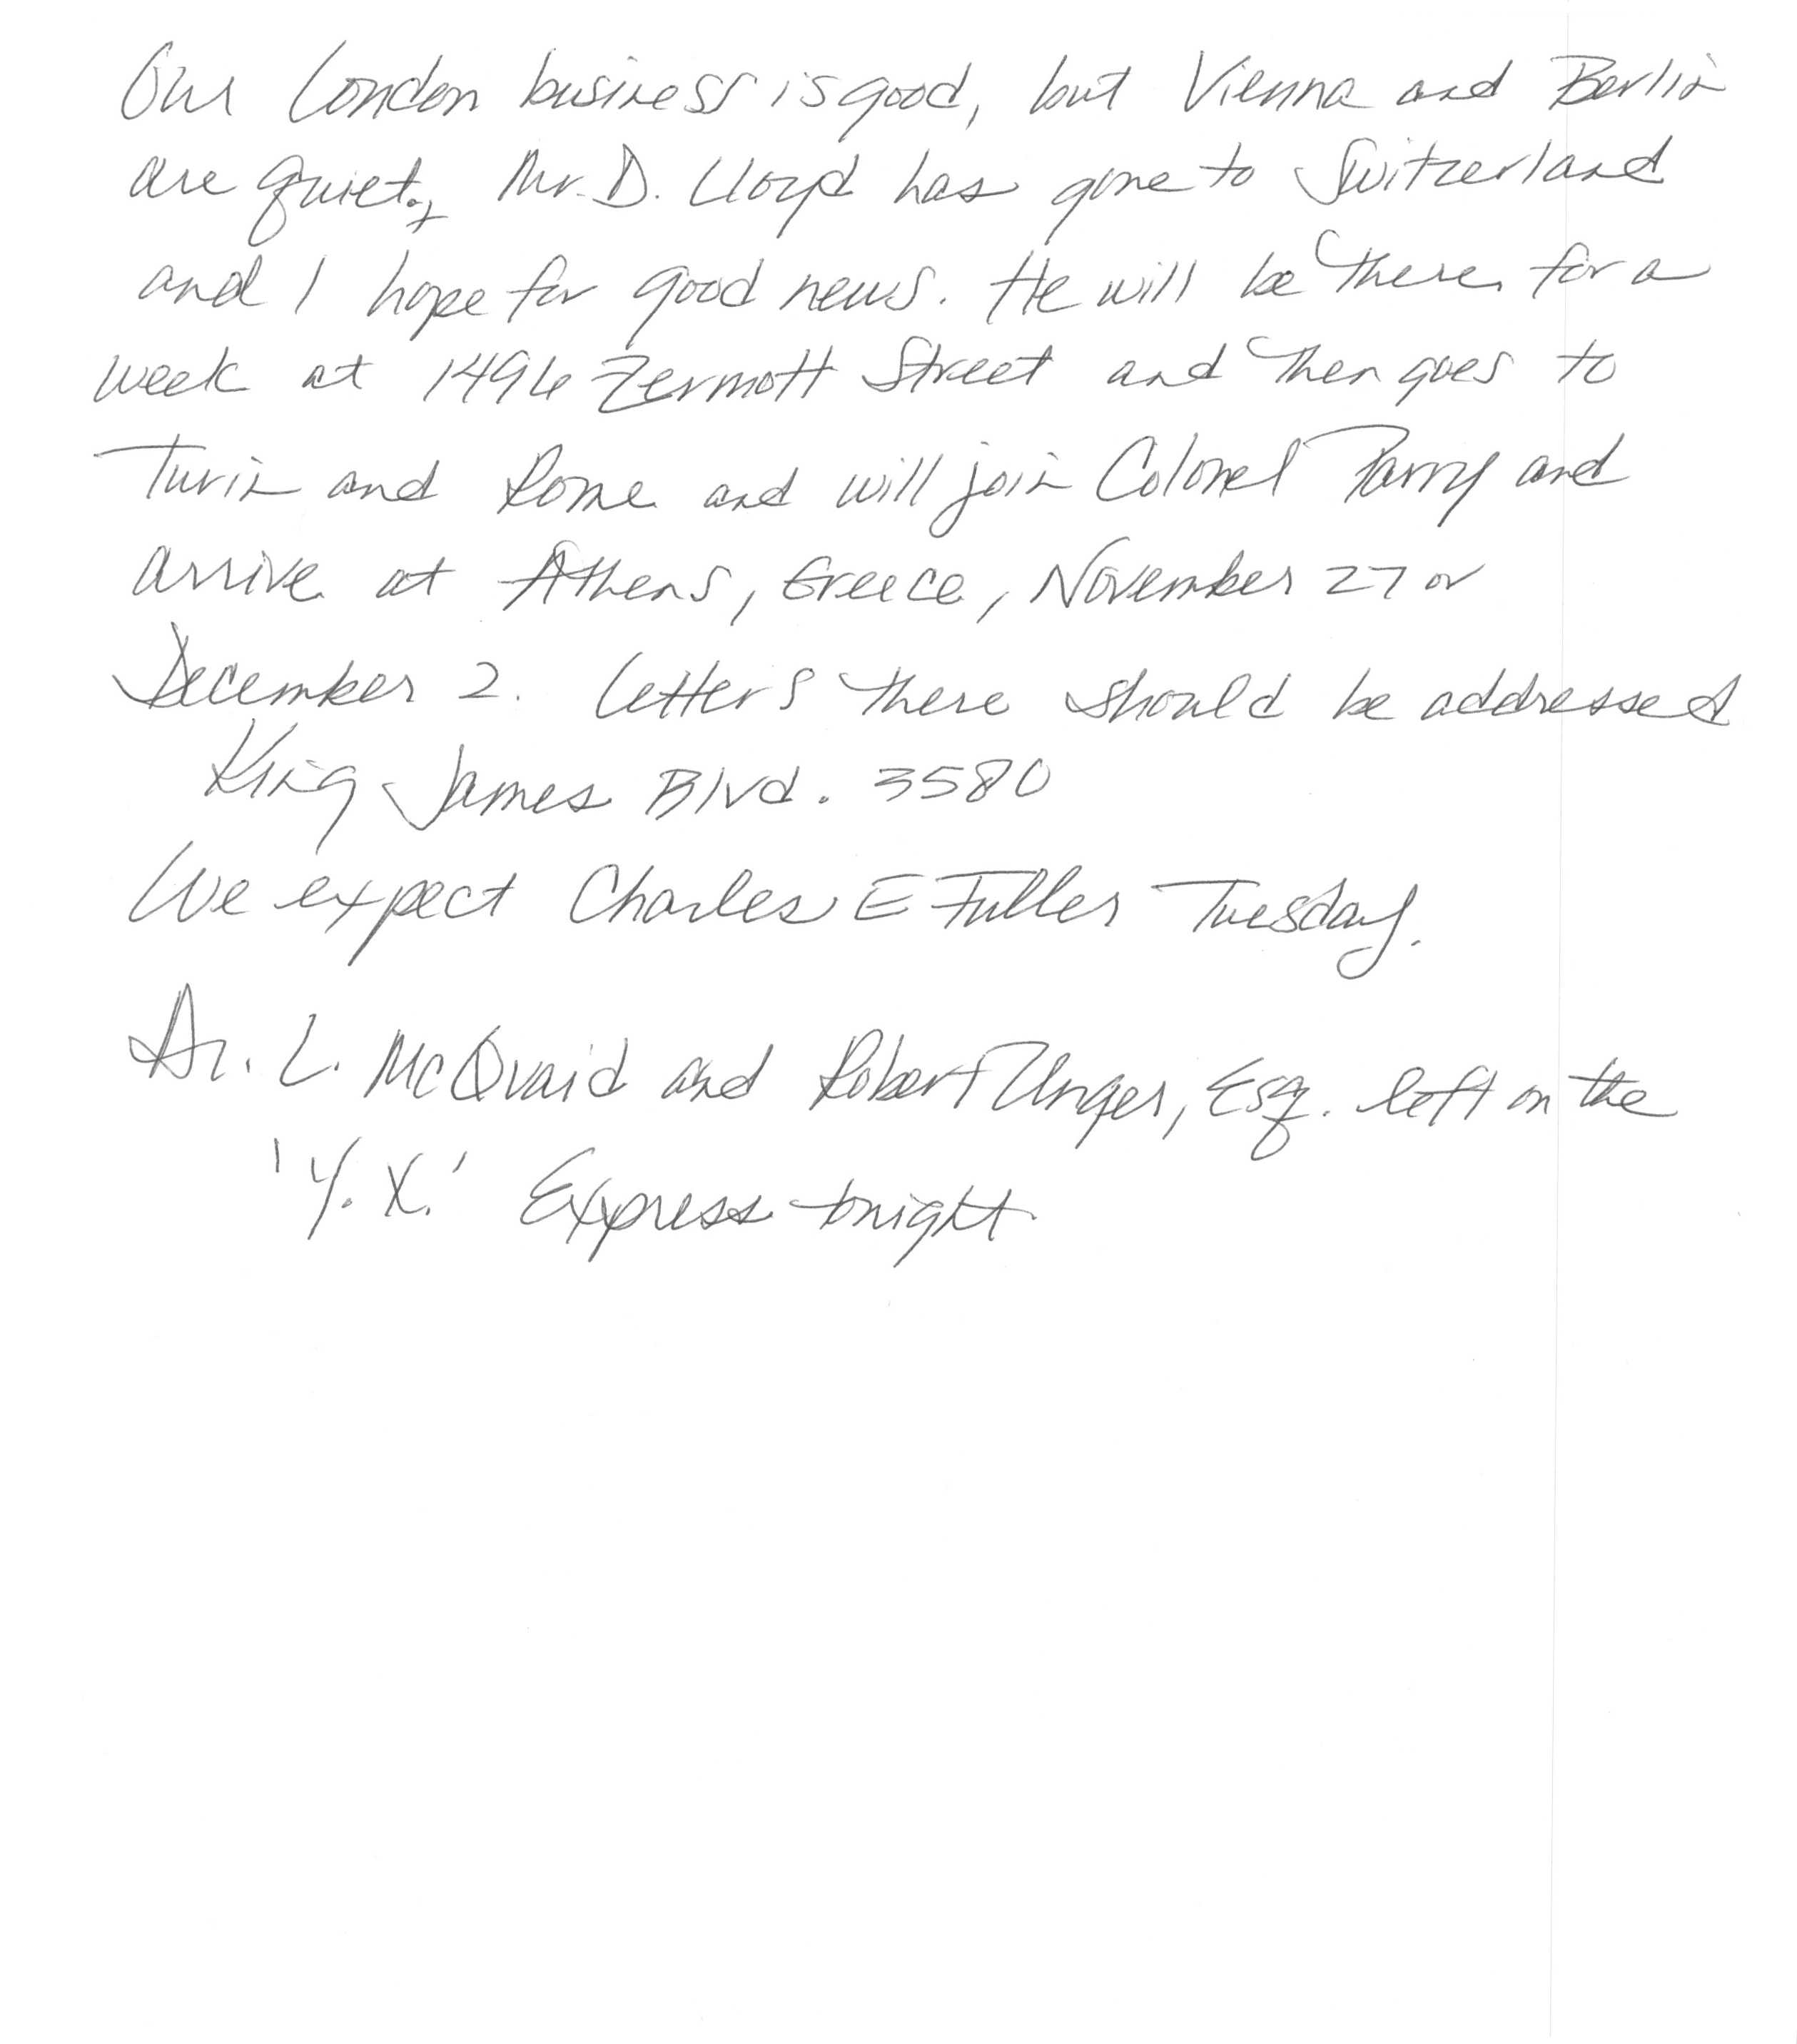 Our London business is good, but Vienna and Berlin
are quiet. Mr. D. Lloyd has gone to Switzerland
and I hope for good news. He will be there for a
week at 1496 Zermott Street and then goes to
Turin and Rome and will join Colonel Parry and
arrive at Athens, Greece, November 27 or
December 2. Letters there should be addressed
King James Blvd. 3580
We expect Charles E Fuller Tuesday.
Dr. L. McQuaid and Robert Unger, Esq. left on the
'Y. X.' Express tonight.